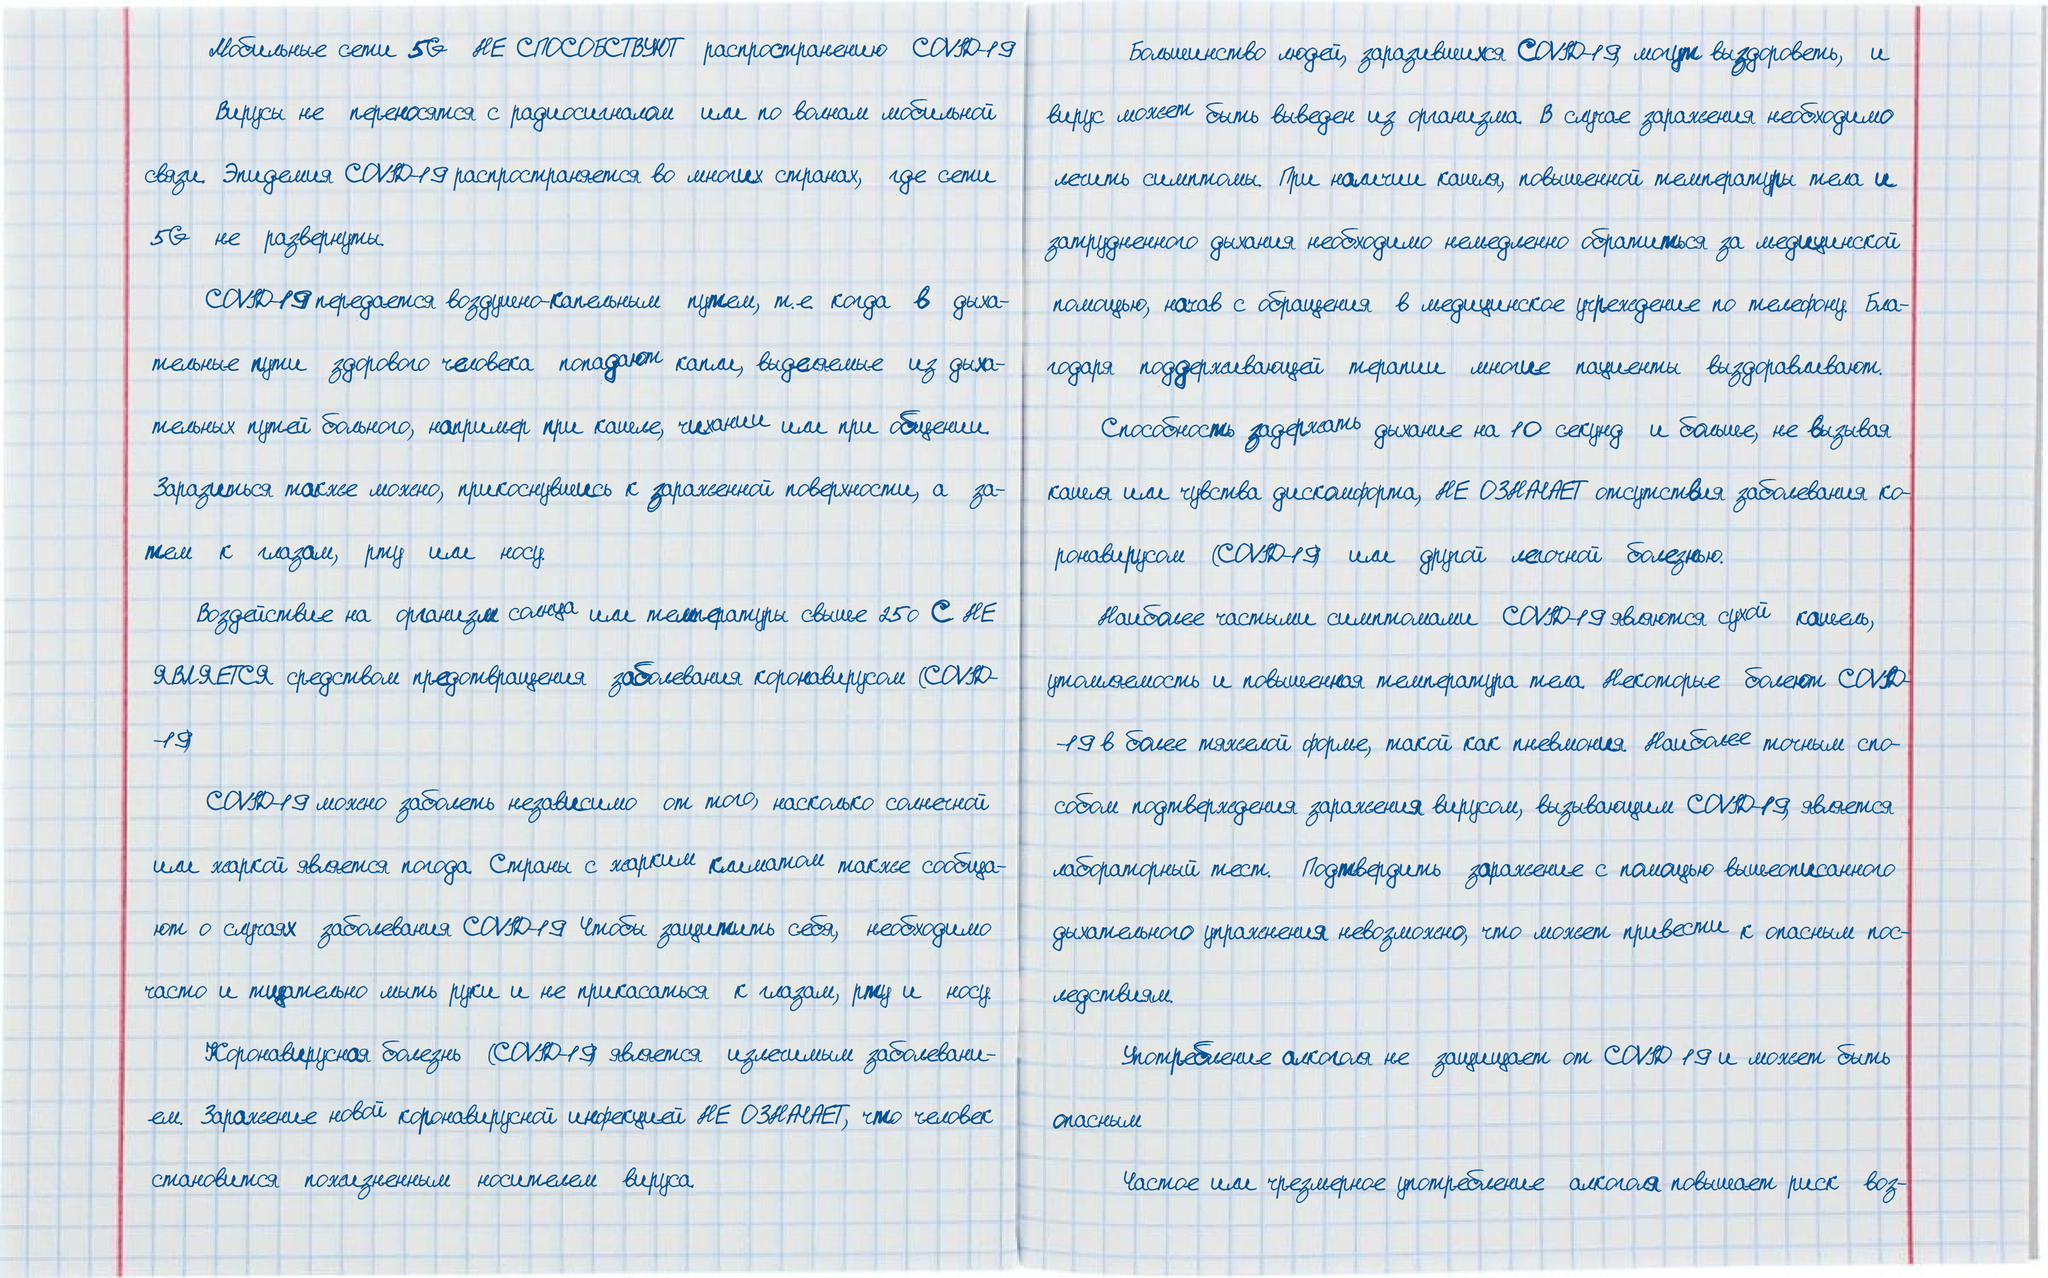 Мобильные сети 5G НЕ СПОСОБСТВУЮТ распространению COVID-19
Вирусы не переносятся с радиосигналом или по волнам мобильной
связи. Эпидемия COVID-19 распространяется во многих странах, где сети
5G не развернуты.
COVID-19 передается воздушно-капельным путем, т.е. когда в дыха-
тельные пути здорового человека попадают капли, выделяемые из дыха-
тельных путей больного, например при кашле, чихании или при общении.
Заразиться также можно, прикоснувшись к зараженной поверхности, а за-
тем к глазам, рту или носу.
Воздействие на организм солнца или температуры свыше 250 С НЕ
ЯВЛЯЕТСЯ средством предотвращения заболевания коронавирусом (COVID-
-19)
COVID-19 можно заболеть независимо от того, насколько солнечной
или жаркой является погода. Страны с жарким климатом также сообща-
ют о случаях заболевания COVID-19 Чтобы защитить себя, необходимо
часто и тщательно мыть руки и не прикасаться к глазам, рту и носу.
Коронавирусная болезнь (COVID-19) является излечимым заболевани-
ем. Заражение новой коронавирусной инфекцией НЕ ОЗНАЧАЕТ, что человек
становится пожизненным носителем вируса.
Большинство людей, заразившихся COVID-19, могут выздороветь, и
вирус может быть выведен из организма. В случае заражения необходимо
лечить симптомы. При наличии кашля, повышенной температуры тела и
затрудненного дыхания необходимо немедленно обратиться за медицинской
помощью, начав с обращения в медицинское учреждение по телефону. Бла-
годаря поддерживающей терапии многие пациенты выздоравливают.
Способность задержать дыхание на 10 секунд и больше, не вызывая
кашля или чувства дискомфорта, НЕ ОЗНАЧАЕТ отсутствия заболевания ко-
ронавирусом (COVID-19) или другой легочной болезнью.
Наиболее частыми симптомами COVID-19 являются сухой кашель,
утомляемость и повышенная температура тела. Некоторые болеют COVID-
-19 в более тяжелой форме, такой как пневмония. Наиболее точным спо-
собом подтверждения заражения вирусом, вызывающим COVID-19, является
лабораторный тест. Подтвердить заражение с помощью вышеописанного
дыхательного упражнения невозможно, что может привести к опасным пос-
ледствиям.
Употребление алкоголя не защищает от COVID 19 и может быть
опасным
Частое или чрезмерное употребление алкоголя повышает риск воз-